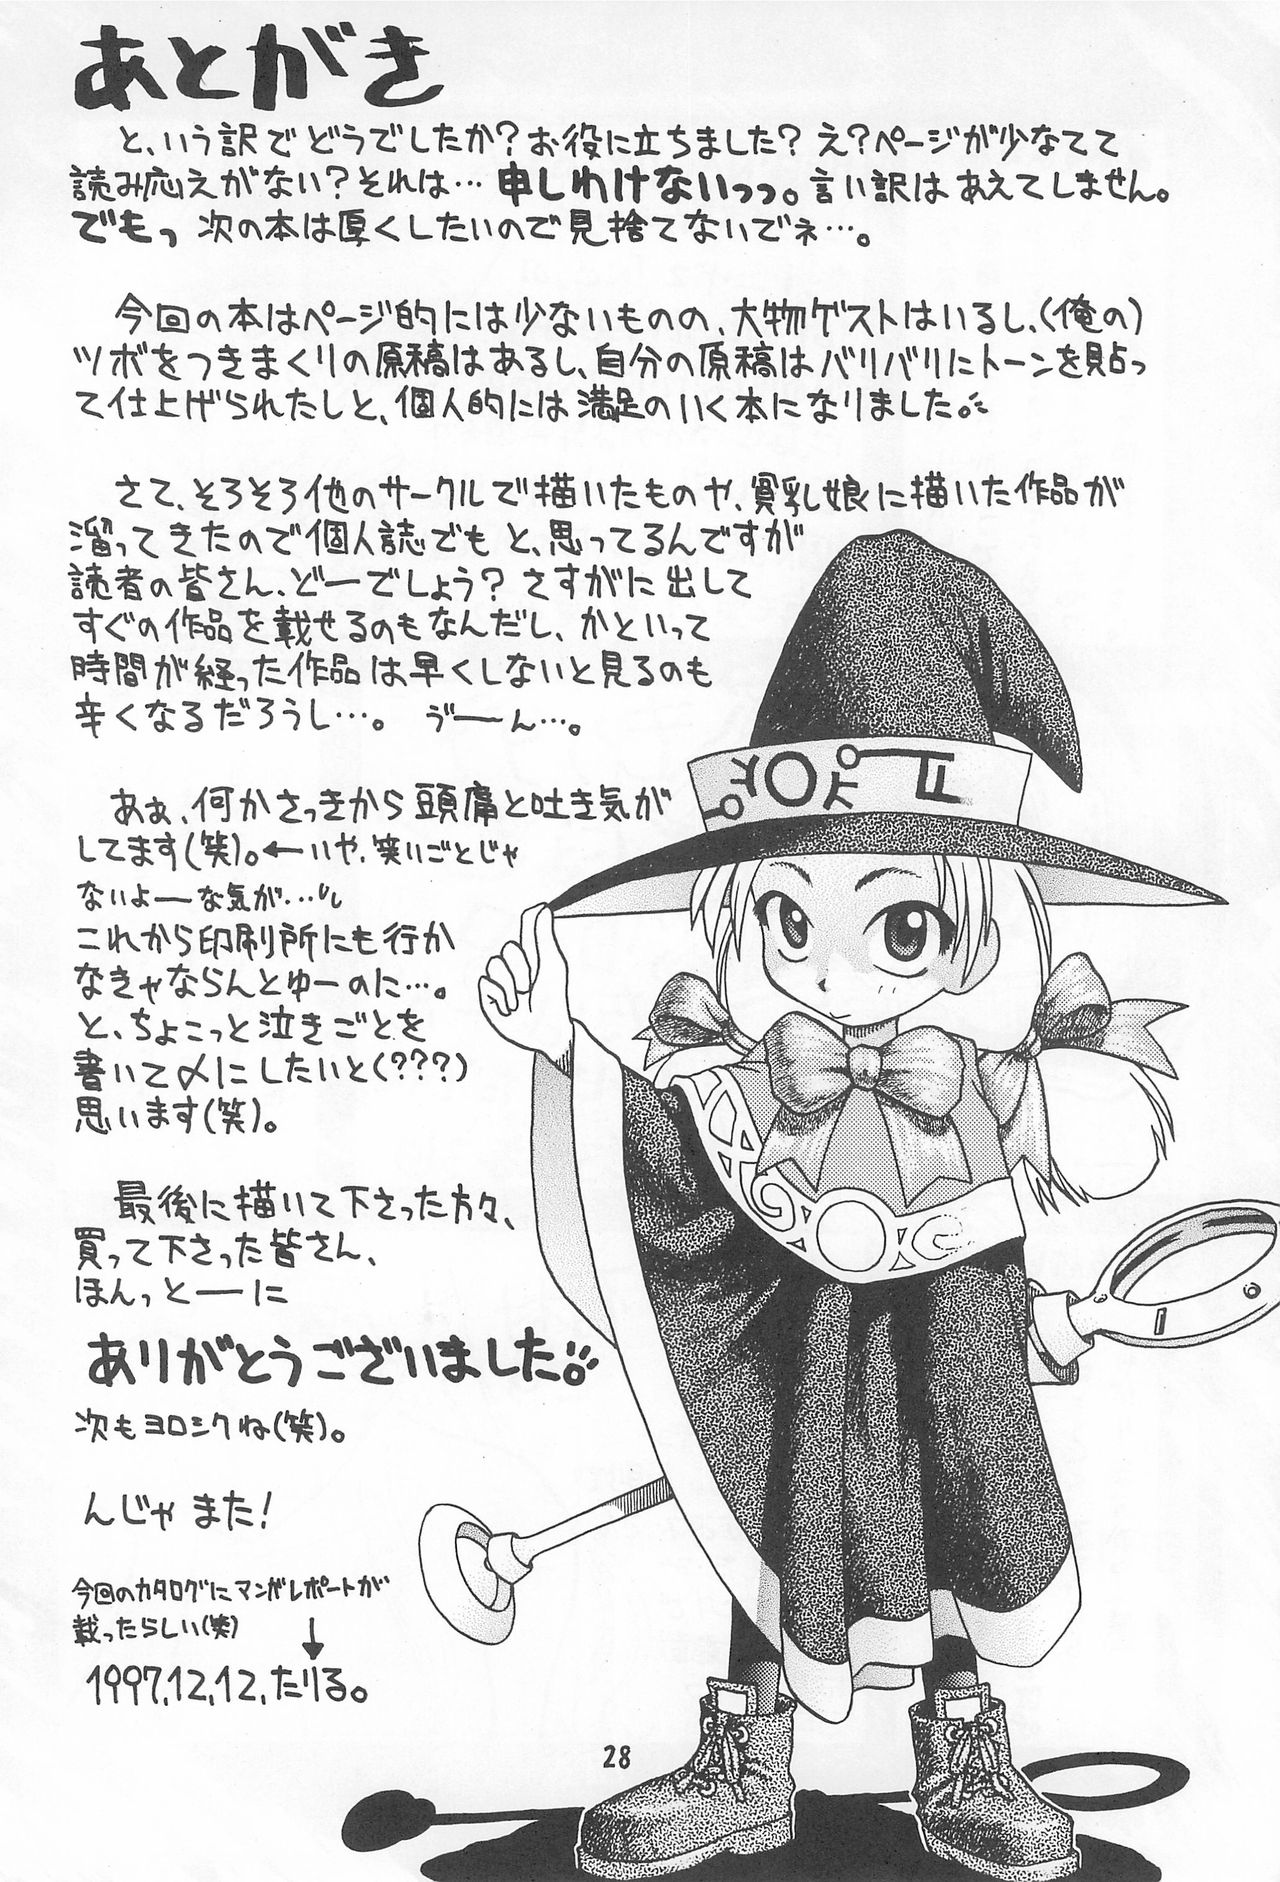 あとがき
と、いう訳でどうでしたか?お役に立ちました?え?ページが少なてて
読み応えがない?それは…申しわけないっっ。言い訳はあえてしません。
でもっ 次の本は厚くしたいので見捨てないでネ…。
今回の本はページ的には少ないものの、大物ゲストはいるし、(俺の)
ツボをつきまくりの原稿はあるし、自分の原稿はバリバリにトーンを貼っ
て仕上げられたしと、個人的には満足のいく本になりました。
さて、そろそろ他のサークルで描いたものや、貧乳娘に描いた作品が
溜ってきたので個人誌でもと、思ってるんですが
読者の皆さん、どーでしょう?さすがに出して
すぐの作品を載せるのもなんだし、かといって
時間が経った作品は早くしないと見るのも
辛くなるだろうし…。 ゔーん…。
あぁ、何かさっきから頭痛と吐き気が
してます(笑)。←いや、笑いごとじゃ
ないよーな気が…
これから印刷所にも行か
なきゃならんとゆーのに…。
と、ちょこっと泣きごとを
書いて〆にしたいと(???)
思います(笑)。
最後に描いて下さった方々、
買って下さった皆さん、
ほんっとーに
ありがとうございました。
次もヨロシクね(笑)。
んじゃ また!
今回のカタログにマンガレポートが
載ったらしい(笑)
↓
1997,12,12,たりる。
28